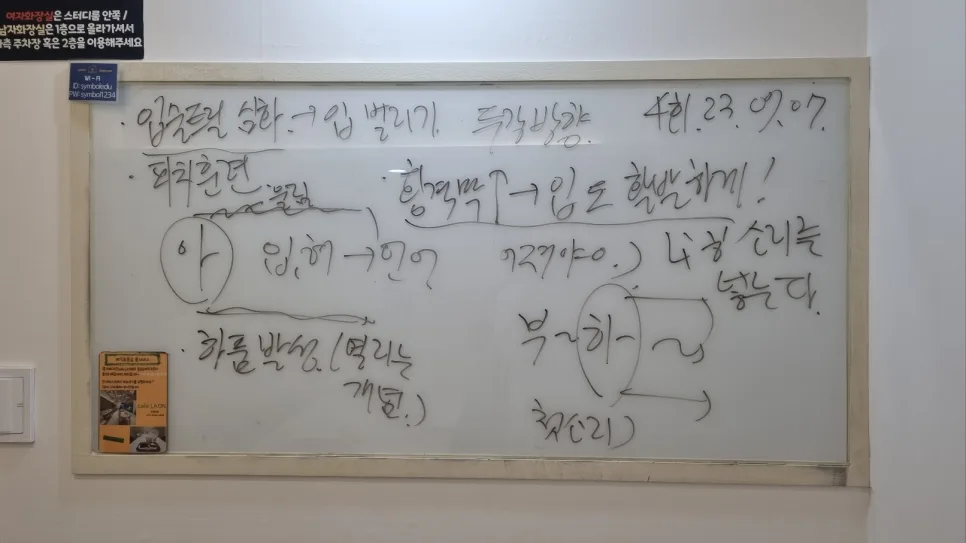 여자화장실은 스터디룸 안쪽 /
남자화장실은 1층으로 올라가셔서
주차장 혹은 2층을 이용해주세요
WI-FI
ID:symboledu
PW:symbol1234
· 입술트릴 심화 → 입 벌리기. 두각방향. 4회. 23. 09. 07.
· 피치훈련
울림
· 횡격막↑ → 입도 활발하게!
아 입, 혀 → 언어
나 한 소리를
넣는다.
부~하~
· 하품발성. (열리는
개념.)
첫소리)